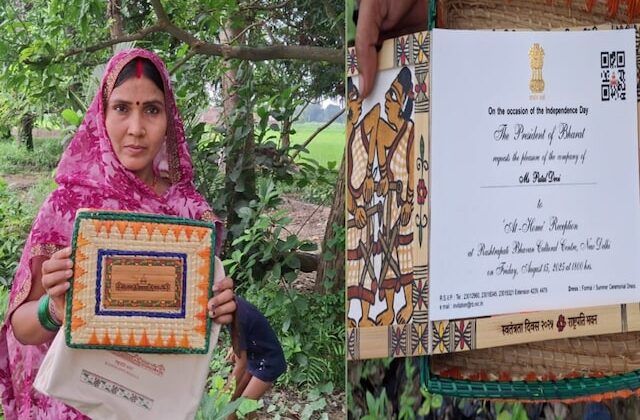 On the occasion of the Independence Day
The President of Bharat
requests the pleasure of the company of
Ms Putul Devi
to
'At-Home' Reception
at Rashtrapati Bhavan Cultural Centre, New Delhi
on Friday, August 15, 2025 at 1800 hrs.
R.S.V.P : Tel : 23012960, 23015345, 23015321 Extension 4229, 4479
Dress : Formal / Summer Ceremonial Dress
स्वतंत्रता दिवस २०२५
राष्ट्रपति भवन